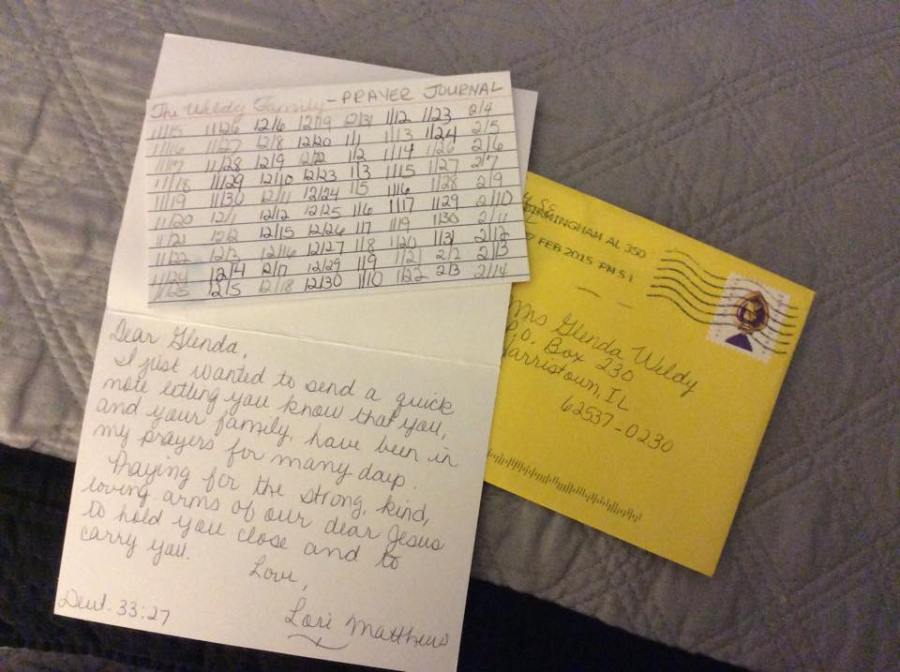 The Weldy Family - PRAYER JOURNAL
11/15 11/26 12/6 12/19 12/31 1/12 1/23 2/4
11/16 11/27 12/8 12/20 1/1 1/13 1/24 2/5
11/17 11/28 12/9 12/22 1/2 1/14 1/26 2/6
11/18 11/29 12/10 12/23 1/3 1/15 1/27 2/7
11/19 11/30 12/11 12/24 1/5 1/16 1/28 2/9
11/20 12/1 12/12 12/25 1/6 1/17 1/29 2/10
11/21 12/2 12/15 12/26 1/7 1/19 1/30 2/11
11/22 12/3 12/16 12/27 1/8 1/20 1/31 2/12
11/24 12/4 12/17 12/29 1/9 1/21 2/2 2/13
11/25 12/5 12/18 12/30 1/10 1/22 2/3 2/14
Dear Glenda,
I just wanted to send a quick
note letting you know that you,
and your family, have been in
my prayers for many days.
Praying for the strong, kind,
loving arms of our dear Jesus
to hold you close and to
carry you.
Love,
Lori Matthews
Deut. 33:27
BIRMINGHAM AL 350
FEB 2015 PM 5 L
Ms Glenda Weldy
P.O. Box 230
Harristown, IL
62537-0230